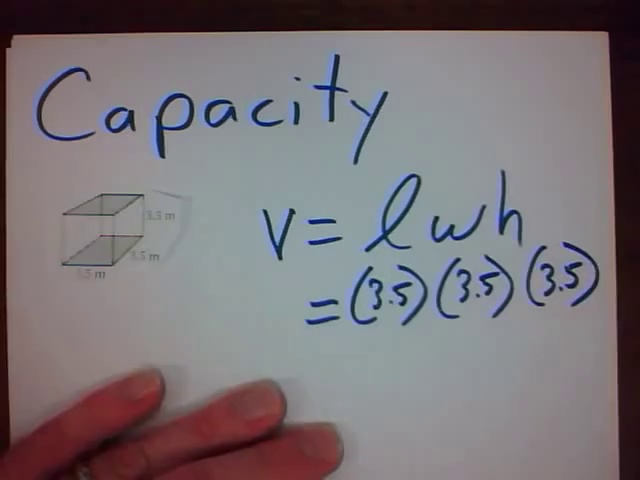 Capacity
3.5 m
3.5 m
3.5 m
V = lwh
= (3.5) (3.5) (3.5)